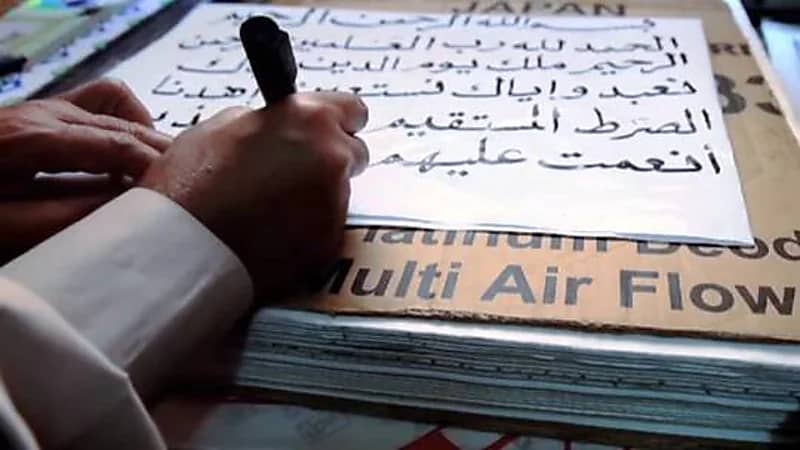 JAPAN
بسم الله الرحمن الرحيم
الحمد لله رب العلمين
الرحيم ملك يوم الدين
نعبد وإياك نستعين
الصرط المستقيم
أنعمت عليهم
Platinum Deod
Multi Air Flow